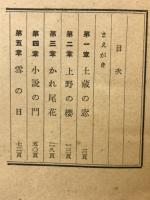 目次
まえがき
第一章 土蔵の窓 一頁
第二章 上野の桜 一三頁
第三章 かれ尾花 二八頁
第四章 小説の門 五〇頁
第五章 雪の日 七二頁